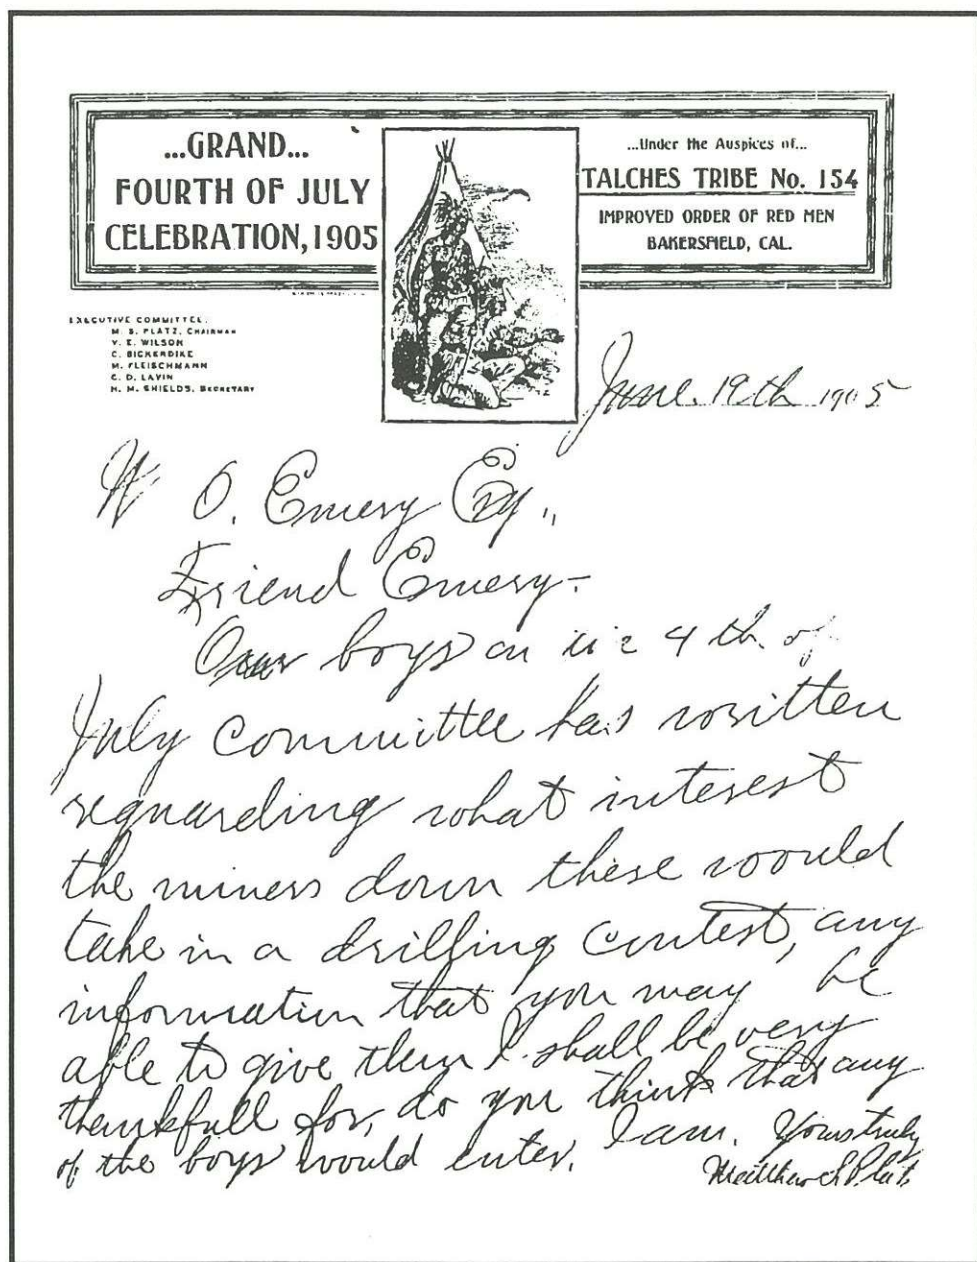 ...GRAND...
FOURTH OF JULY
CELEBRATION, 1905
...Under the Auspices of...
TALCHES TRIBE No. 154
IMPROVED ORDER OF RED MEN
BAKERSFIELD, CAL.
EXECUTIVE COMMITTEE.
M. S. PLATZ, CHAIRMAN
V. E. WILSON
C. BICKERDIKE
M. FLEISCHMANN
C. D. LAVIN
H. M. SHIELDS, SECRETARY
June 19th 1905
W O. Emery Esq.,
Friend Emery-
Our boys on the 4th of
July committee has written
reguarding what interest
the miners down there would
take in a drilling contest, any
information that you may be
able to give them I shall be very
thankfull for, do you think that any
of the boys would enter. I am. Yours truly
Matthew S Platz